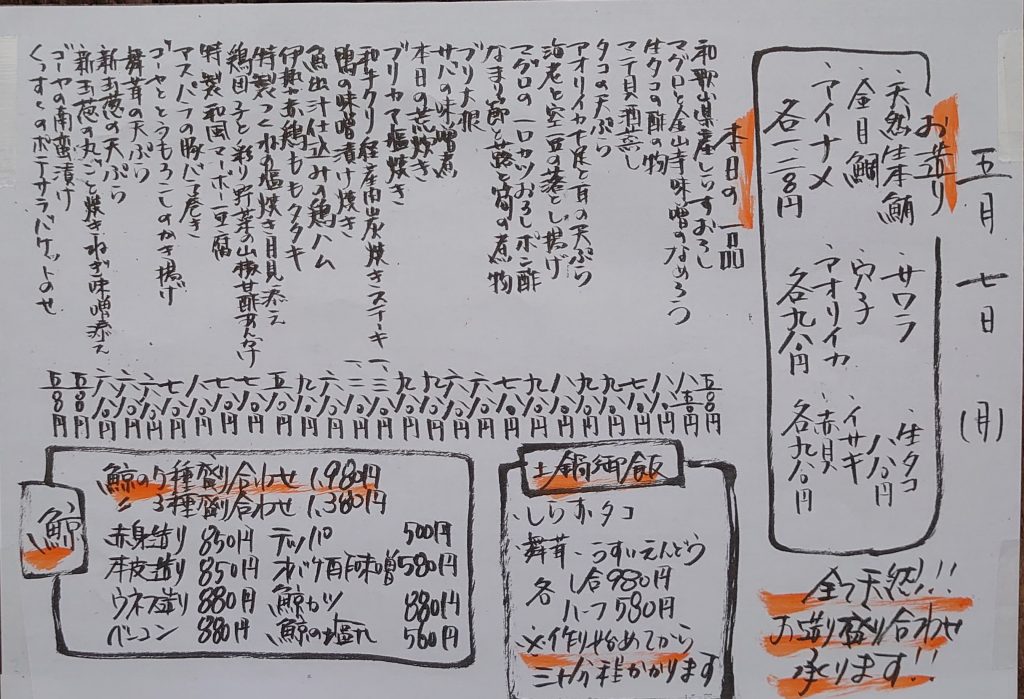 五月七日(月)
お造り
・天然生本鮪
・金目鯛
・アイナメ
各一二八〇円
・サワラ
・穴子
・アオリイカ
各九八〇円
・生タコ
八八〇円
・イサキ
・赤貝
各九八〇円
全て天然!!
お造り盛り合わせ
承ります!!
本日の一品
和歌山県産しらすおろし 五〇〇円
マグロと金山寺味噌のなめろう 八五〇円
生タコの酢の物 八八〇円
マテ貝酒蒸し 七八〇円
タコの天ぷら 九八〇円
アオリイカ下足と耳の天ぷら 九八〇円
海老と空豆の落とし揚げ 八八〇円
マグロの一口カツおろしポン酢 九八〇円
なまり節と蕗と筍の煮物 七八〇円
ブリ大根 八八〇円
サバの味噌煮 六八〇円
本日の荒炊き 六八〇円
ブリカマ塩焼き 九八〇円
和牛クリ 経産肉炭焼きステーキ 一、三八〇円
鴨の味噌漬け焼き 一、二八〇円
魚出汁仕込みの鶏ハム 六八〇円
伊勢赤鶏ももタタキ 九八〇円
特製つくねの塩焼き月見添え 五八〇円
鶏団子と彩り野菜の山椒甘酢あんかけ 七八〇円
特製和風マーボー豆腐 八八〇円
アスパラの豚バラ巻き 七八〇円
ゴーヤととうもろこしのかき揚げ 六八〇円
舞茸の天ぷら 六八〇円
新玉葱の天ぷら 六八〇円
新玉葱の丸ごと焼きねぎ味噌添え
ゴーヤの南蛮漬け 五〇〇円
くっすくのポテサラバケットのせ 五八〇円
土鍋御飯
・しらす・タコ
・舞茸・うすいえんどう
各 1合980円
ハーフ580円
※作り始めてから
三十分程かかります
鯨
鯨の5種盛り合わせ 1,980円
〃 3種盛り合わせ 1,380円
赤身造り 850円 テッパ 500円
本皮造り 850円 オバケ酢味噌 580円
ウネス造り 880円 鯨カツ 880円
ベーコン 880円 鯨の塩タレ 580円